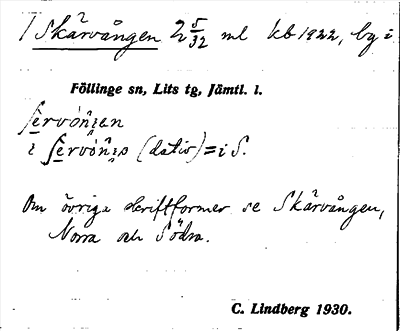 1 Skärvången 2 5/32 ml kb 1922, by i
Föllinge sn, Lits tg, Jämtl. l.
i (dativ) = i S.
Om övriga skriftformer se Skärvången,
Norra och Södra.
C. Lindberg 1930.